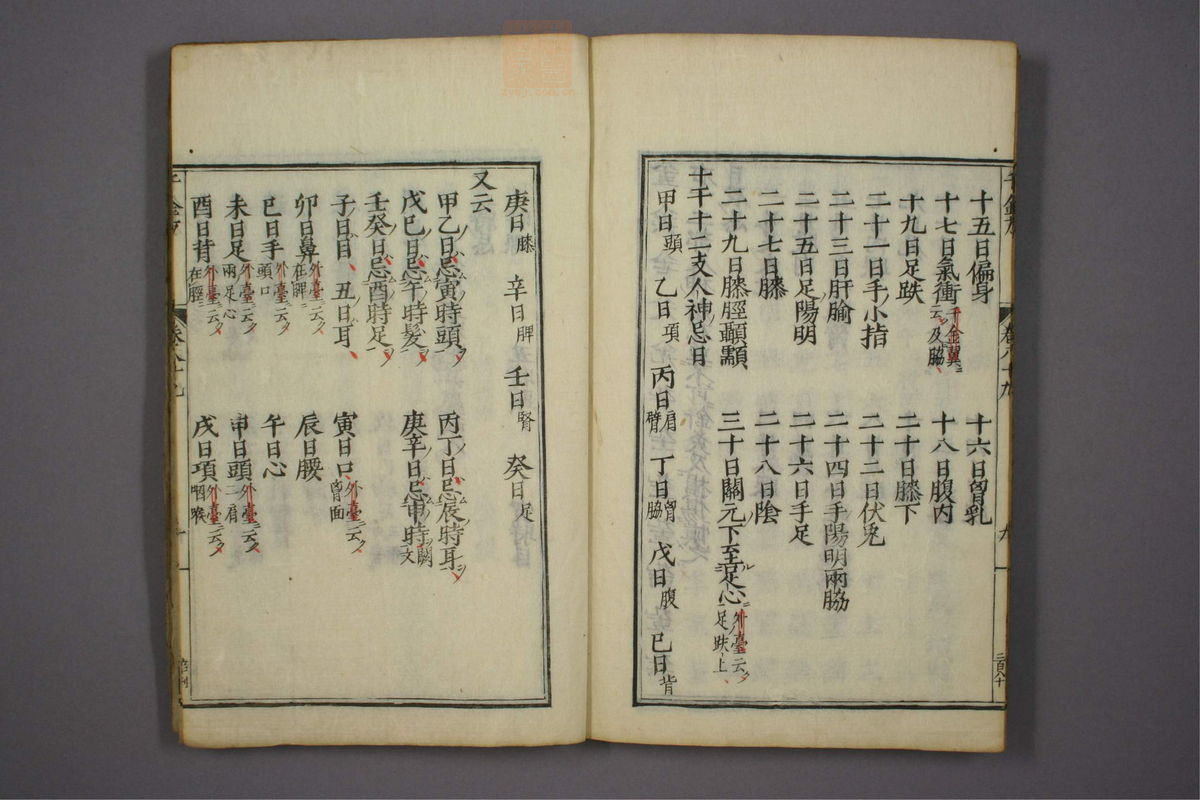 十五日偏身　十六日胷乳
十七日氣衝千金翼云及脇　十八日腹內
十九日足趺　二十日膝下
二十一日手小指　二十二日伏兎
二十三日肝腧　二十四日手陽明兩脇
二十五日足陽明　二十六日手足
二十七日膝　二十八日陰
二十九日膝脛顳顬　三十日關元下至足心外臺云足趺上
十干十二支人神忌日
甲日頭　乙日項　丙日肩臂　丁日胷脇　戊日腹　己日背
庚日膝　辛日脾　壬日腎　癸日足
又云
甲乙日忌寅時頭　丙丁日忌辰時耳
戊巳日忌午時髮　庚辛日忌申時闕文
壬癸日忌酉時足
子日目　丑日耳　寅日口外臺云胷面
卯日鼻外臺云在脾　辰日腰
巳日手外臺云頭口　午日心
未日足外臺云兩足心　申日頭外臺云二肩
酉日背外臺云在脛　戌日項外臺云咽喉
千金方　卷八十九　九
千金方　卷八十九